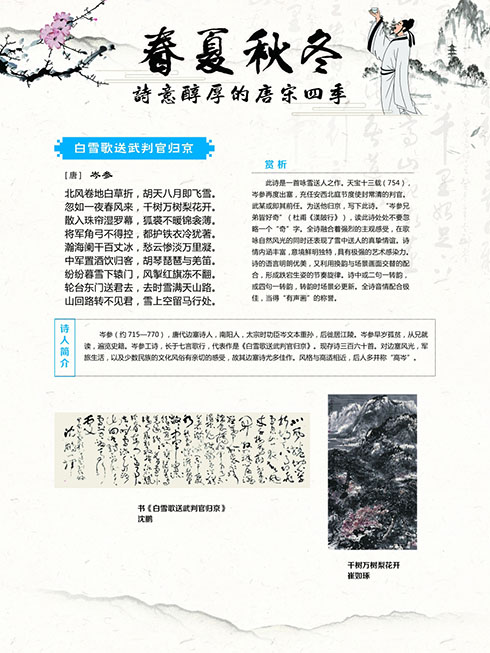 春夏秋冬
詩意醇厚的唐宋四季
白雪歌送武判官归京
[唐] 岑参
北风卷地白草折，胡天八月即飞雪。
忽如一夜春风来，千树万树梨花开。
散入珠帘湿罗幕，狐裘不暖锦衾薄。
将军角弓不得控，都护铁衣冷犹著。
瀚海阑干百丈冰，愁云惨淡万里凝。
中军置酒饮归客，胡琴琵琶与羌笛。
纷纷暮雪下辕门，风掣红旗冻不翻。
轮台东门送君去，去时雪满天山路。
山回路转不见君，雪上空留马行处。
赏析
此诗是一首咏雪送人之作。天宝十三载（754），
岑参再度出塞，充任安西北庭节度使封常清的判官。
武某或即其前任。为送他归京，写下此诗。“岑参兄
弟皆好奇”（杜甫《渼陂行》），读此诗处处不要忽
略一个“奇”字。全诗融合着强烈的主观感受，在歌
咏自然风光的同时还表现了雪中送人的真挚情谊。诗
情内涵丰富，意境鲜明独特，具有极强的艺术感染力。
诗的语言明朗优美，又利用换韵与场景画面交替的配
合，形成跌宕生姿的节奏旋律。诗中或二句一转韵，
或四句一转韵，转韵时场景必更新。全诗音情配合极
佳，当得“有声画”的称誉。
诗人简介
岑参（约 715—770），唐代边塞诗人，南阳人，太宗时功臣岑文本重孙，后徙居江陵。岑参早岁孤贫，从兄就
读，遍览史籍。岑参工诗，长于七言歌行，代表作是《白雪歌送武判官归京》。现存诗三百六十首。对边塞风光，军
旅生活，以及少数民族的文化风俗有亲切的感受，故其边塞诗尤多佳作。风格与高适相近，后人多并称“高岑”。
书《白雪歌送武判官归京》
沈鹏
千树万树梨花开
崔如琢